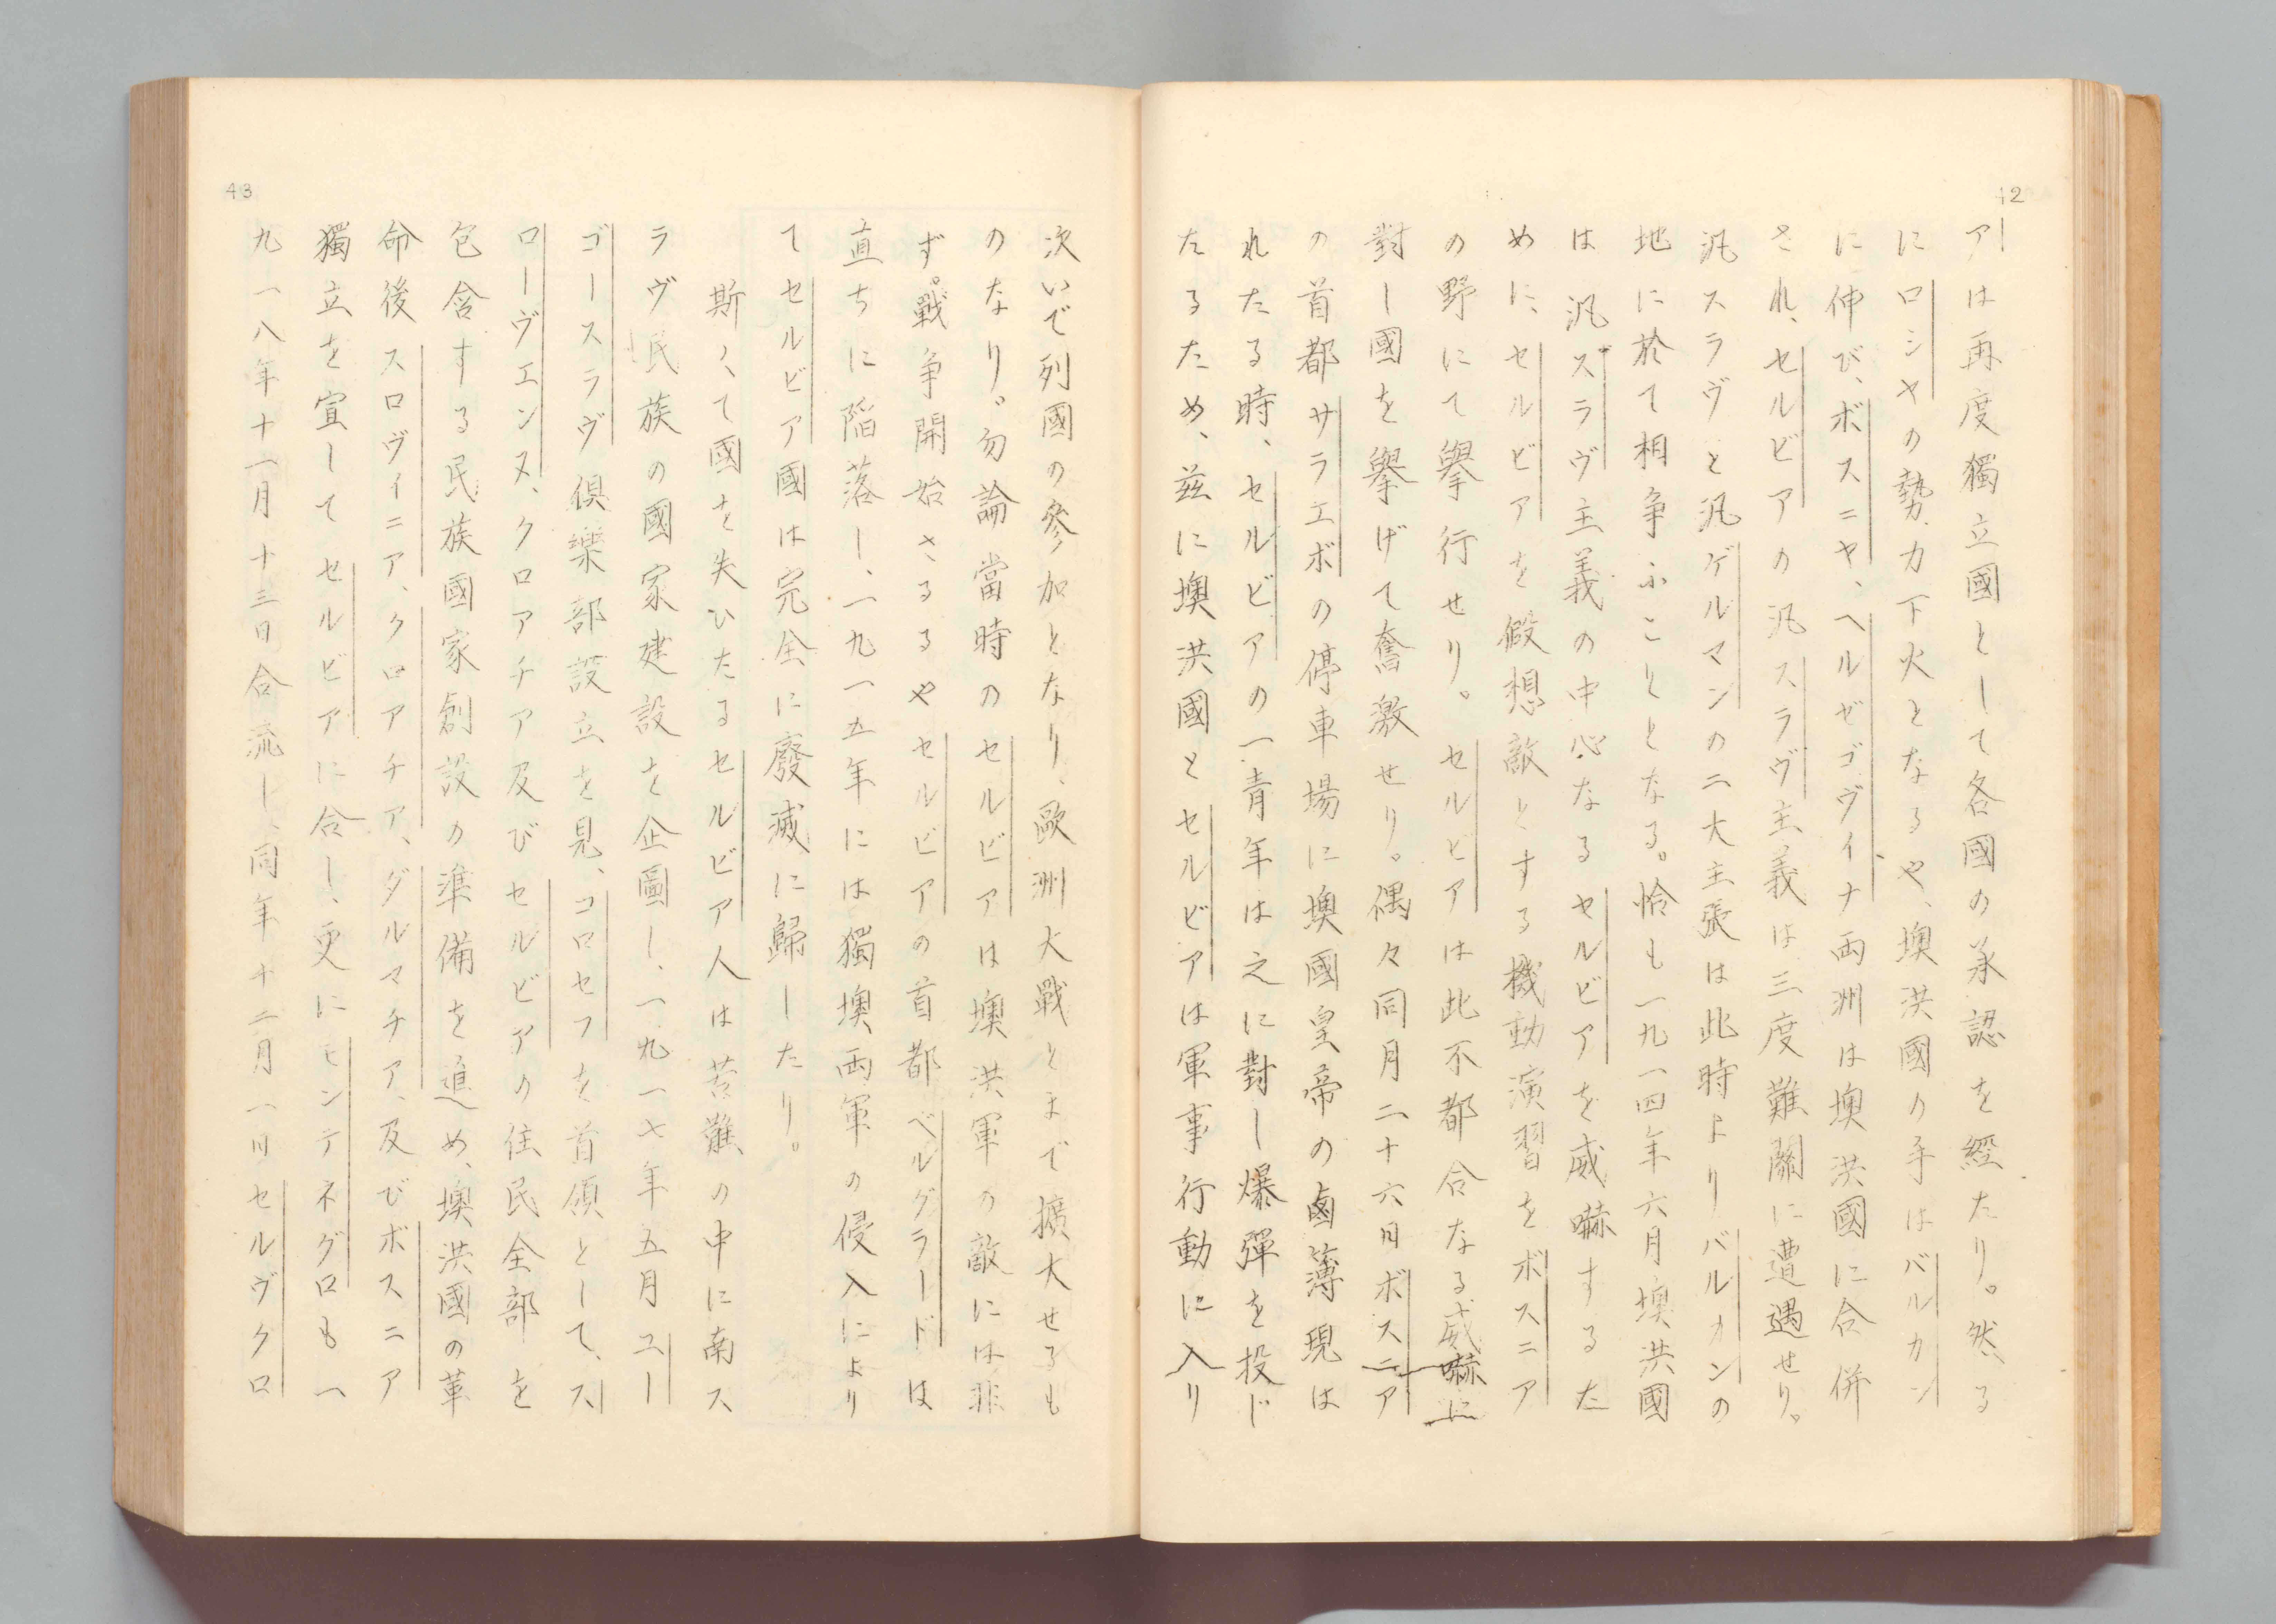 42
アは再度獨立國として各國の承認を經たり。然る
にロシヤの勢力下火となるや、墺洪國の手はバルカン
に伸び、ボスニヤ、ヘルゼゴヴイナ両洲は墺洪國に合併
され、セルビアの汎スラヴ主義は三度難關に遭遇せり。
汎スラヴと汎ゲルマンの二大主張は此時よりバルカンの
地に於て相争ふことゝなる。恰も一九一四年六月墺洪國
は汎スラヴ主義の中心なるセルビアを威嚇するた
めに、セルビアを假想敵とする機動演習をボスニア
の野にて擧行せり。セルビアは此不都合なる威嚇に
對し國を擧げて奮激せり。偶々同月二十六日ボスニア
の首都サラエボの停車場に墺國皇帝の鹵簿現は
れたる時、セルビアの一青年は之に對し爆彈を投じ
たるため、茲に墺洪國とセルビアは軍事行動に入り
43
次いで列國の參加となり、歐洲大戰とまで擴大せるも
のなり。勿論當時のセルビアは墺洪軍の敵には非
ず。戰争開始さるるやセルビアの首都ベルグラードは
直ちに陷落し、一九一五年には獨墺両軍の侵入により
てセルビア國は完全に廢滅に歸したり。
斯くて國を失ひたるセルビア人は苦難の中に南ス
ラヴ民族の國家建設を企圖し、一九一七年五月ユー
ゴースラヴ倶樂部設立を見、コロセフを首領として、ス
ローヴエンヌ、クロアチア及びセルビアの住民全部を
包含する民族國家創設の準備を進め、墺洪國の革
命後スロヴィニア、クロアチア、ダルマチア、及びボスニア
獨立を宣してセルビアに合し、更にモンテネグロも一
九一八年十一月十三日合流し、同年十二月一日セルヴクロ